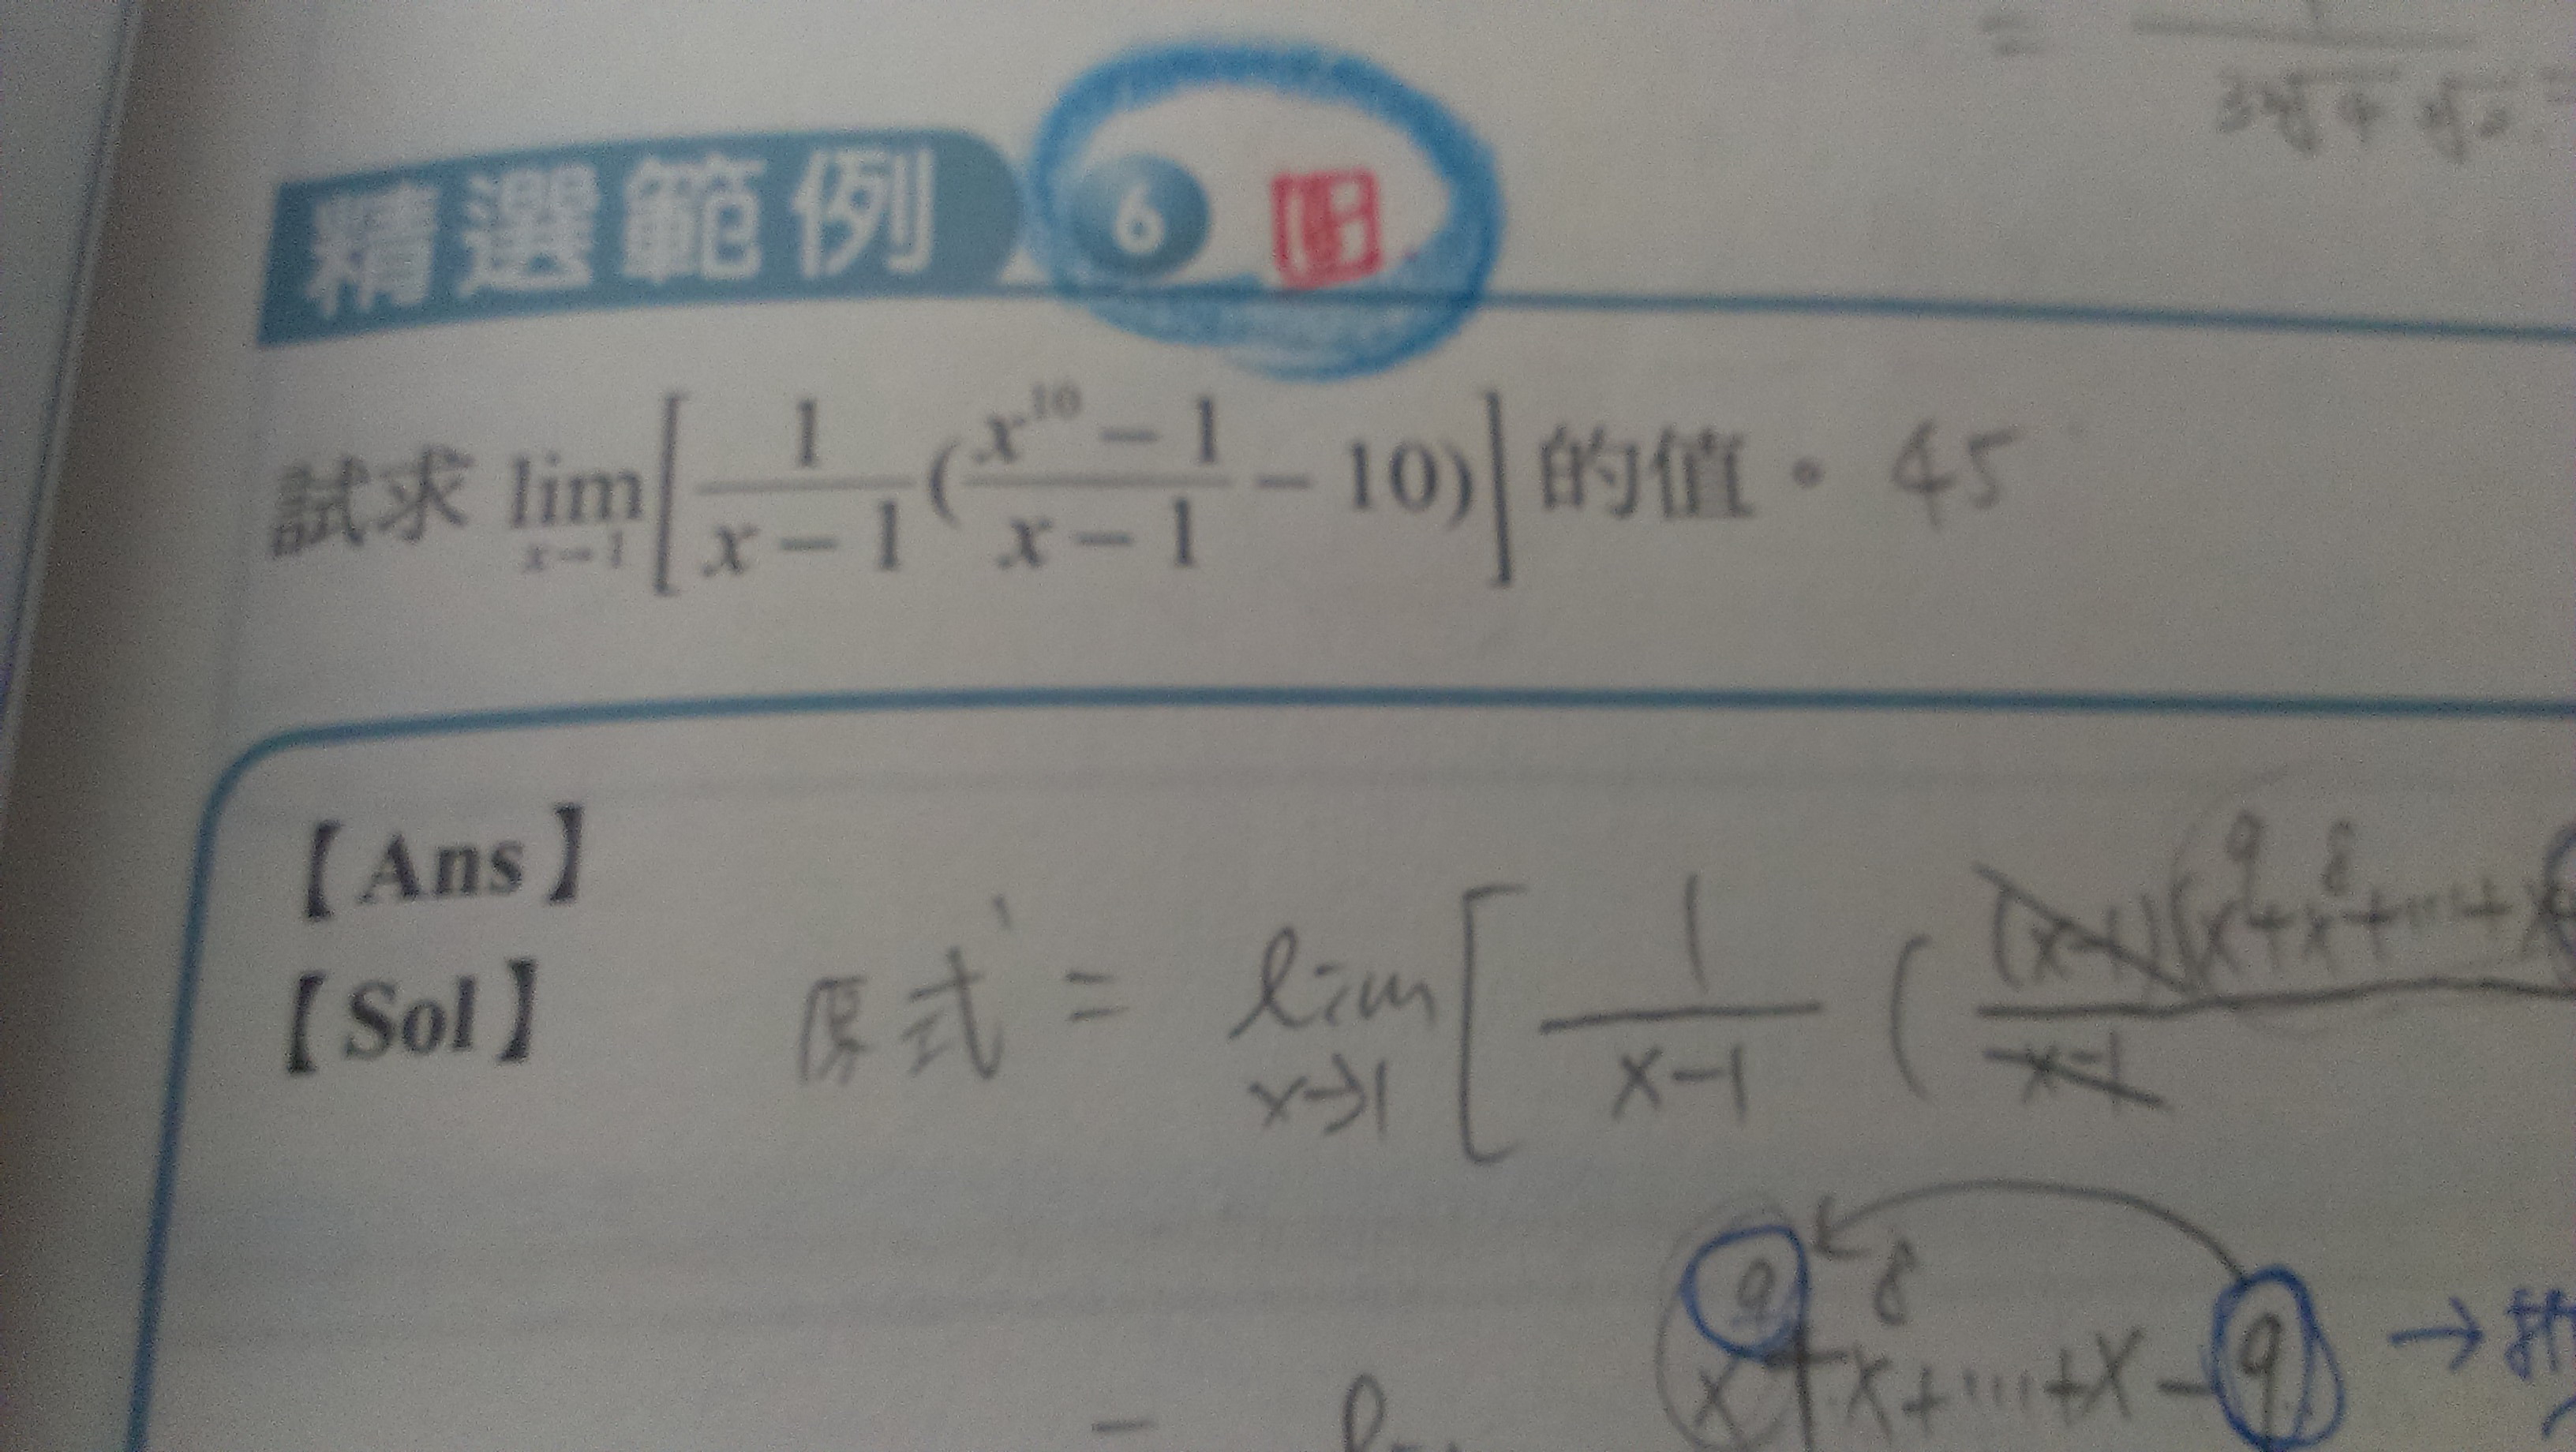 = 1
精選範例 6
試求 lim x→1 [ 1/(x−1) ( (x^10 − 1)/(x − 1) − 10) ] 的值。 45
【Ans】
【Sol】 原式 = lim x→1 [ 1/(x−1) ( (x−1)(x^9+x^8+…+x / x−1
x^9+x^8+…+x−9 →
=